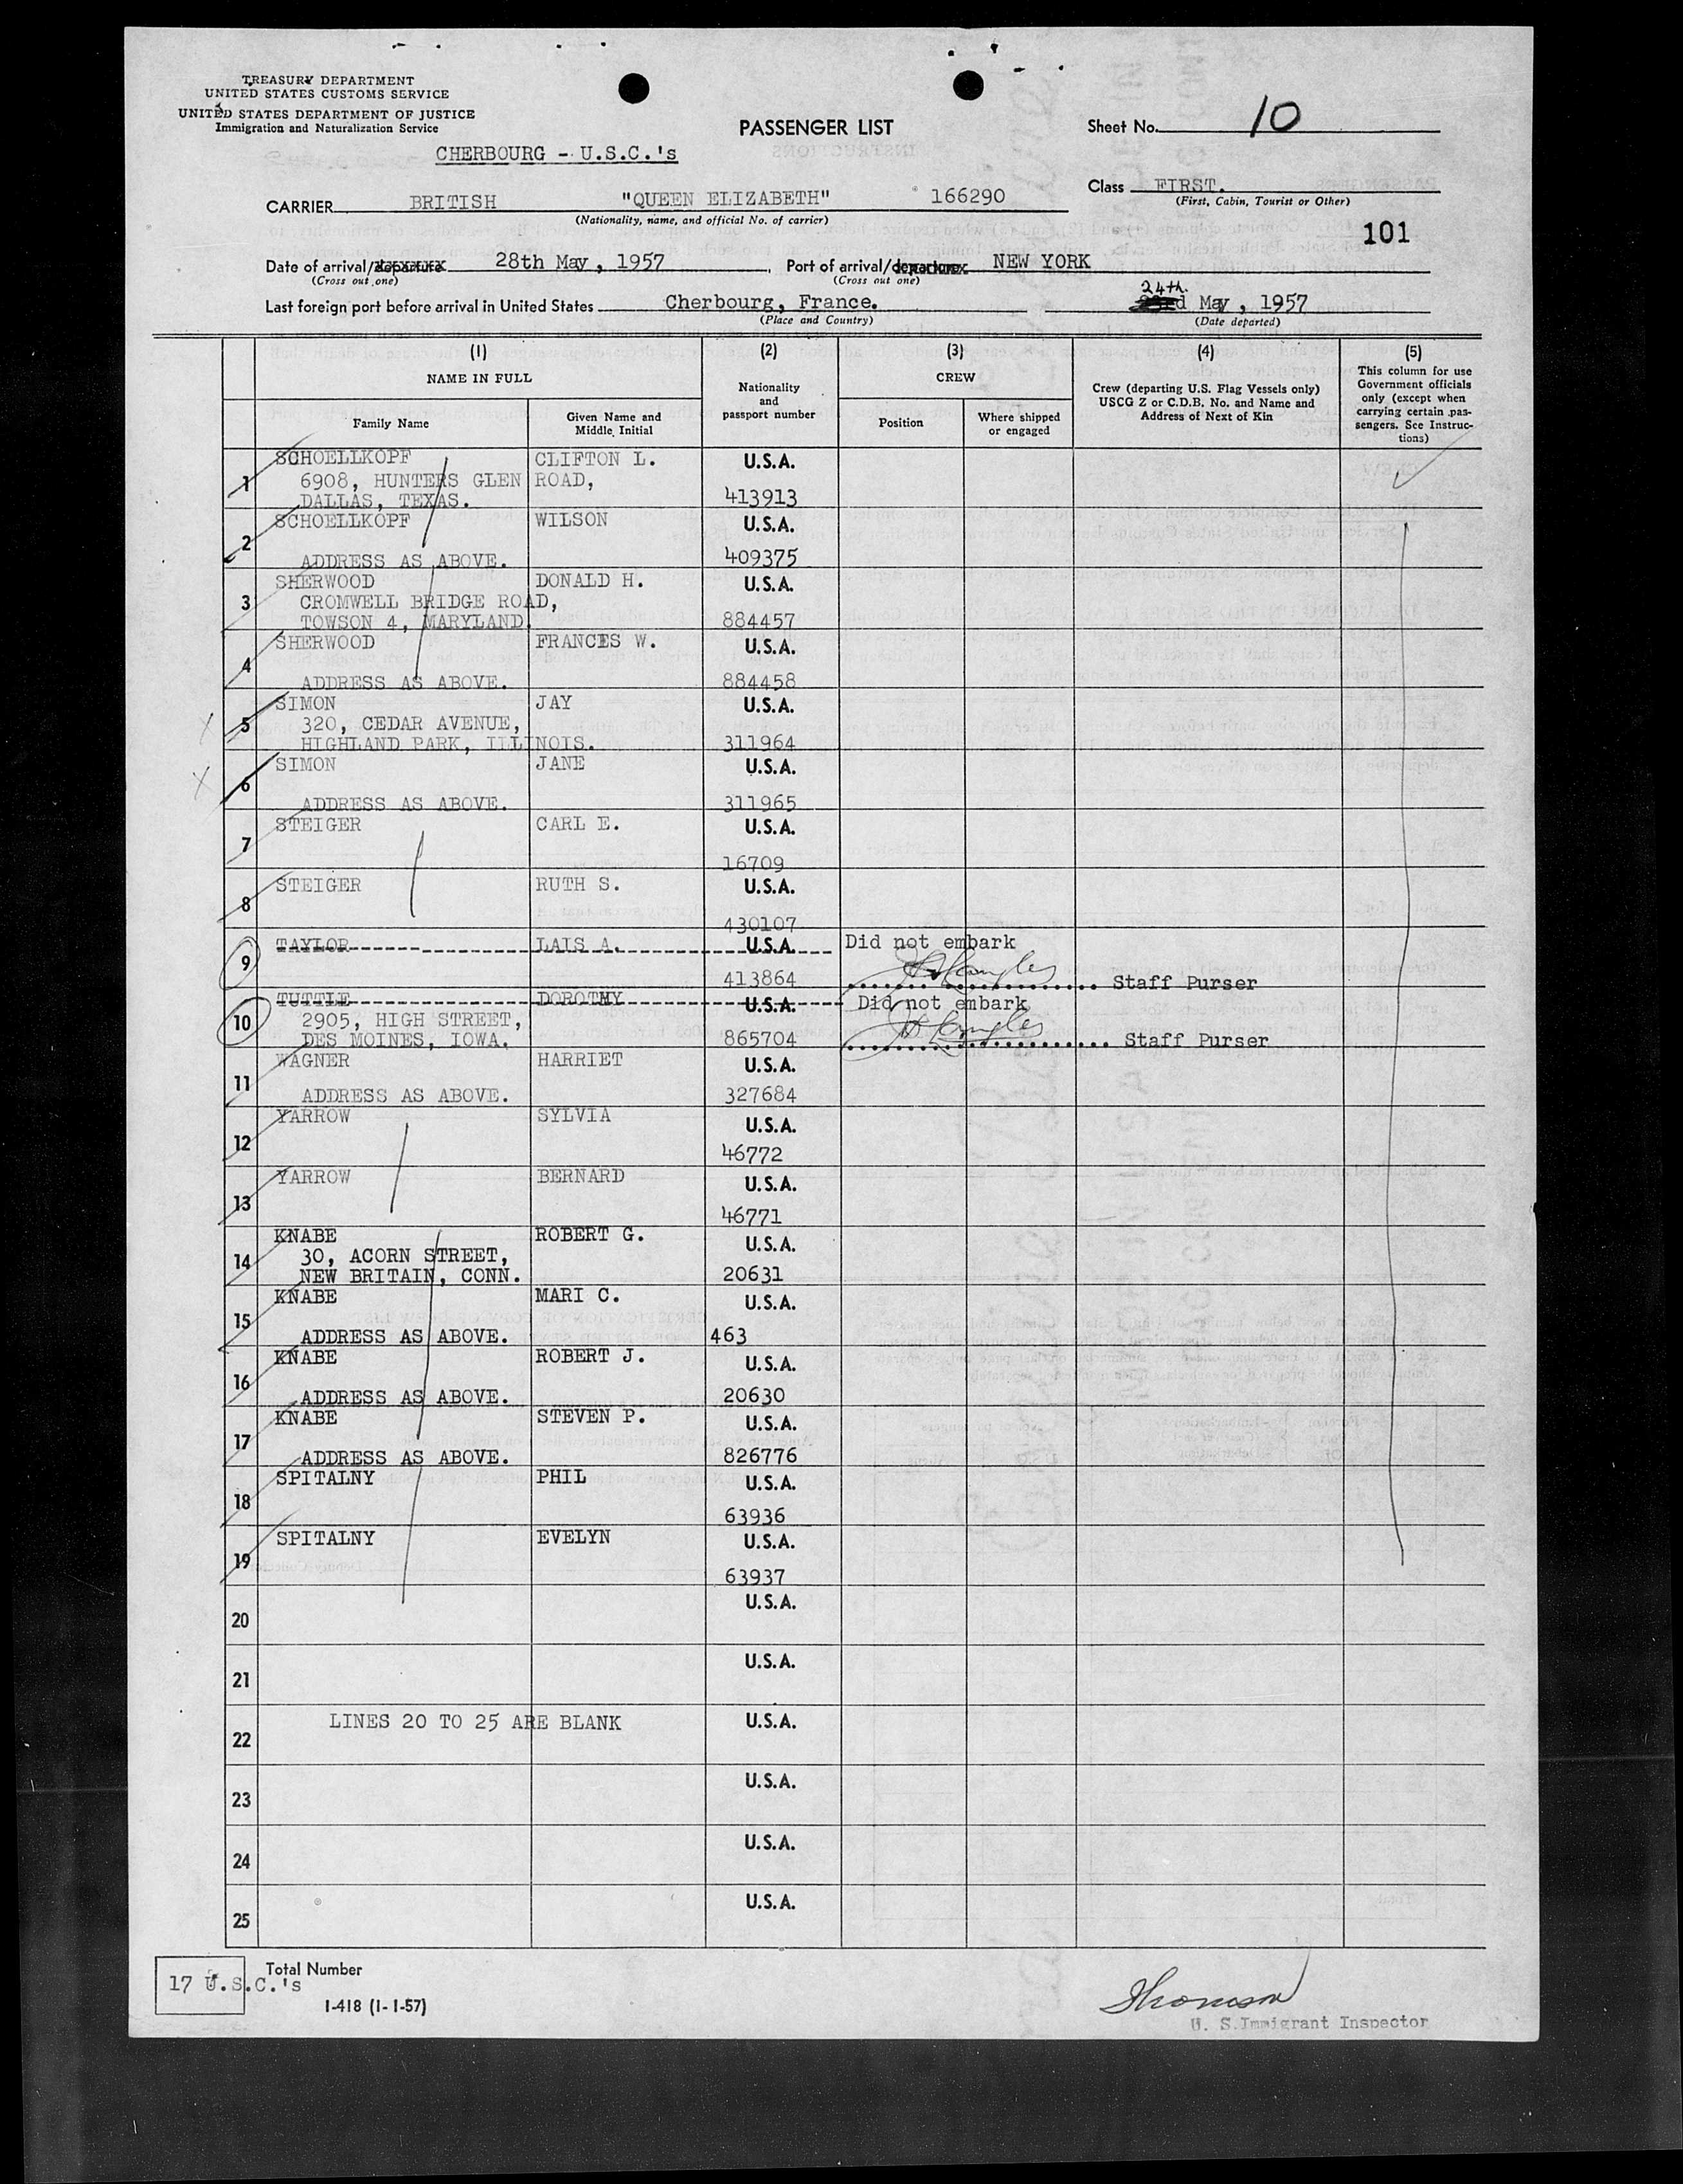 TREASURY DEPARTMENT
UNITED STATES CUSTOMS SERVICE
UNITED STATES DEPARTMENT OF JUSTICE
Immigration and Naturalization Service
CHERBOURG - U.S.C.'s
PASSENGER LIST
Sheet No. 10
CARRIER BRITISH "QUEEN ELIZABETH" 166290
(Nationality, name, and official No. of carrier)
Class FIRST.
(First, Cabin, Tourist or Other)
101
Date of arrival/departure 28th May, 1957, Port of arrival/departure NEW YORK
(Cross out one) (Cross out one)
24th.
Last foreign port before arrival in United States Cherbourg, France. 23rd May, 1957
(Place and Country) (Date departed)
(1) (2) (3) (4) (5)
NAME IN FULL
Family Name
Given Name and Middle Initial
Nationality and passport number
CREW
Position
Where shipped or engaged
Crew (departing U.S. Flag Vessels only)
USCG Z or C.D.B. No. and Name and
Address of Next of Kin
This column for use
Government officials
only (except when
carrying certain pas-
sengers. See Instruc-
tions)
1 SCHOELLKOPF CLIFTON L. U.S.A.
6908, HUNTERS GLEN ROAD,
DALLAS, TEXAS. 413913
2 SCHOELLKOPF WILSON U.S.A.
ADDRESS AS ABOVE. 409375
3 SHERWOOD DONALD H. U.S.A.
CROMWELL BRIDGE ROAD,
TOWSON 4, MARYLAND. 884457
4 SHERWOOD FRANCES W. U.S.A.
ADDRESS AS ABOVE. 884458
5 SIMON JAY U.S.A.
320, CEDAR AVENUE,
HIGHLAND PARK, ILLINOIS. 311964
6 SIMON JANE U.S.A.
ADDRESS AS ABOVE. 311965
7 STEIGER CARL E. U.S.A.
16709
8 STEIGER RUTH S. U.S.A.
430107
9 TAYLOR LAIS A. U.S.A. Did not embark
413864 Staff Purser
10 TUTTLE DOROTHY U.S.A. Did not embark
2905, HIGH STREET,
DES MOINES, IOWA. 865704 Staff Purser
11 WAGNER HARRIET U.S.A.
ADDRESS AS ABOVE. 327684
12 YARROW SYLVIA U.S.A.
46772
13 YARROW BERNARD U.S.A.
46771
14 KNABE ROBERT G. U.S.A.
30, ACORN STREET,
NEW BRITAIN, CONN. 20631
15 KNABE MARI C. U.S.A.
ADDRESS AS ABOVE. 463
16 KNABE ROBERT J. U.S.A.
ADDRESS AS ABOVE. 20630
17 KNABE STEVEN P. U.S.A.
ADDRESS AS ABOVE. 826776
18 SPITALNY PHIL U.S.A.
63936
19 SPITALNY EVELYN U.S.A.
63937
20 U.S.A.
21 U.S.A.
22 LINES 20 TO 25 ARE BLANK U.S.A.
23 U.S.A.
24 U.S.A.
25 U.S.A.
17 U.S.C.'s Total Number
I-418 (1-1-57)
U. S. Immigrant Inspector